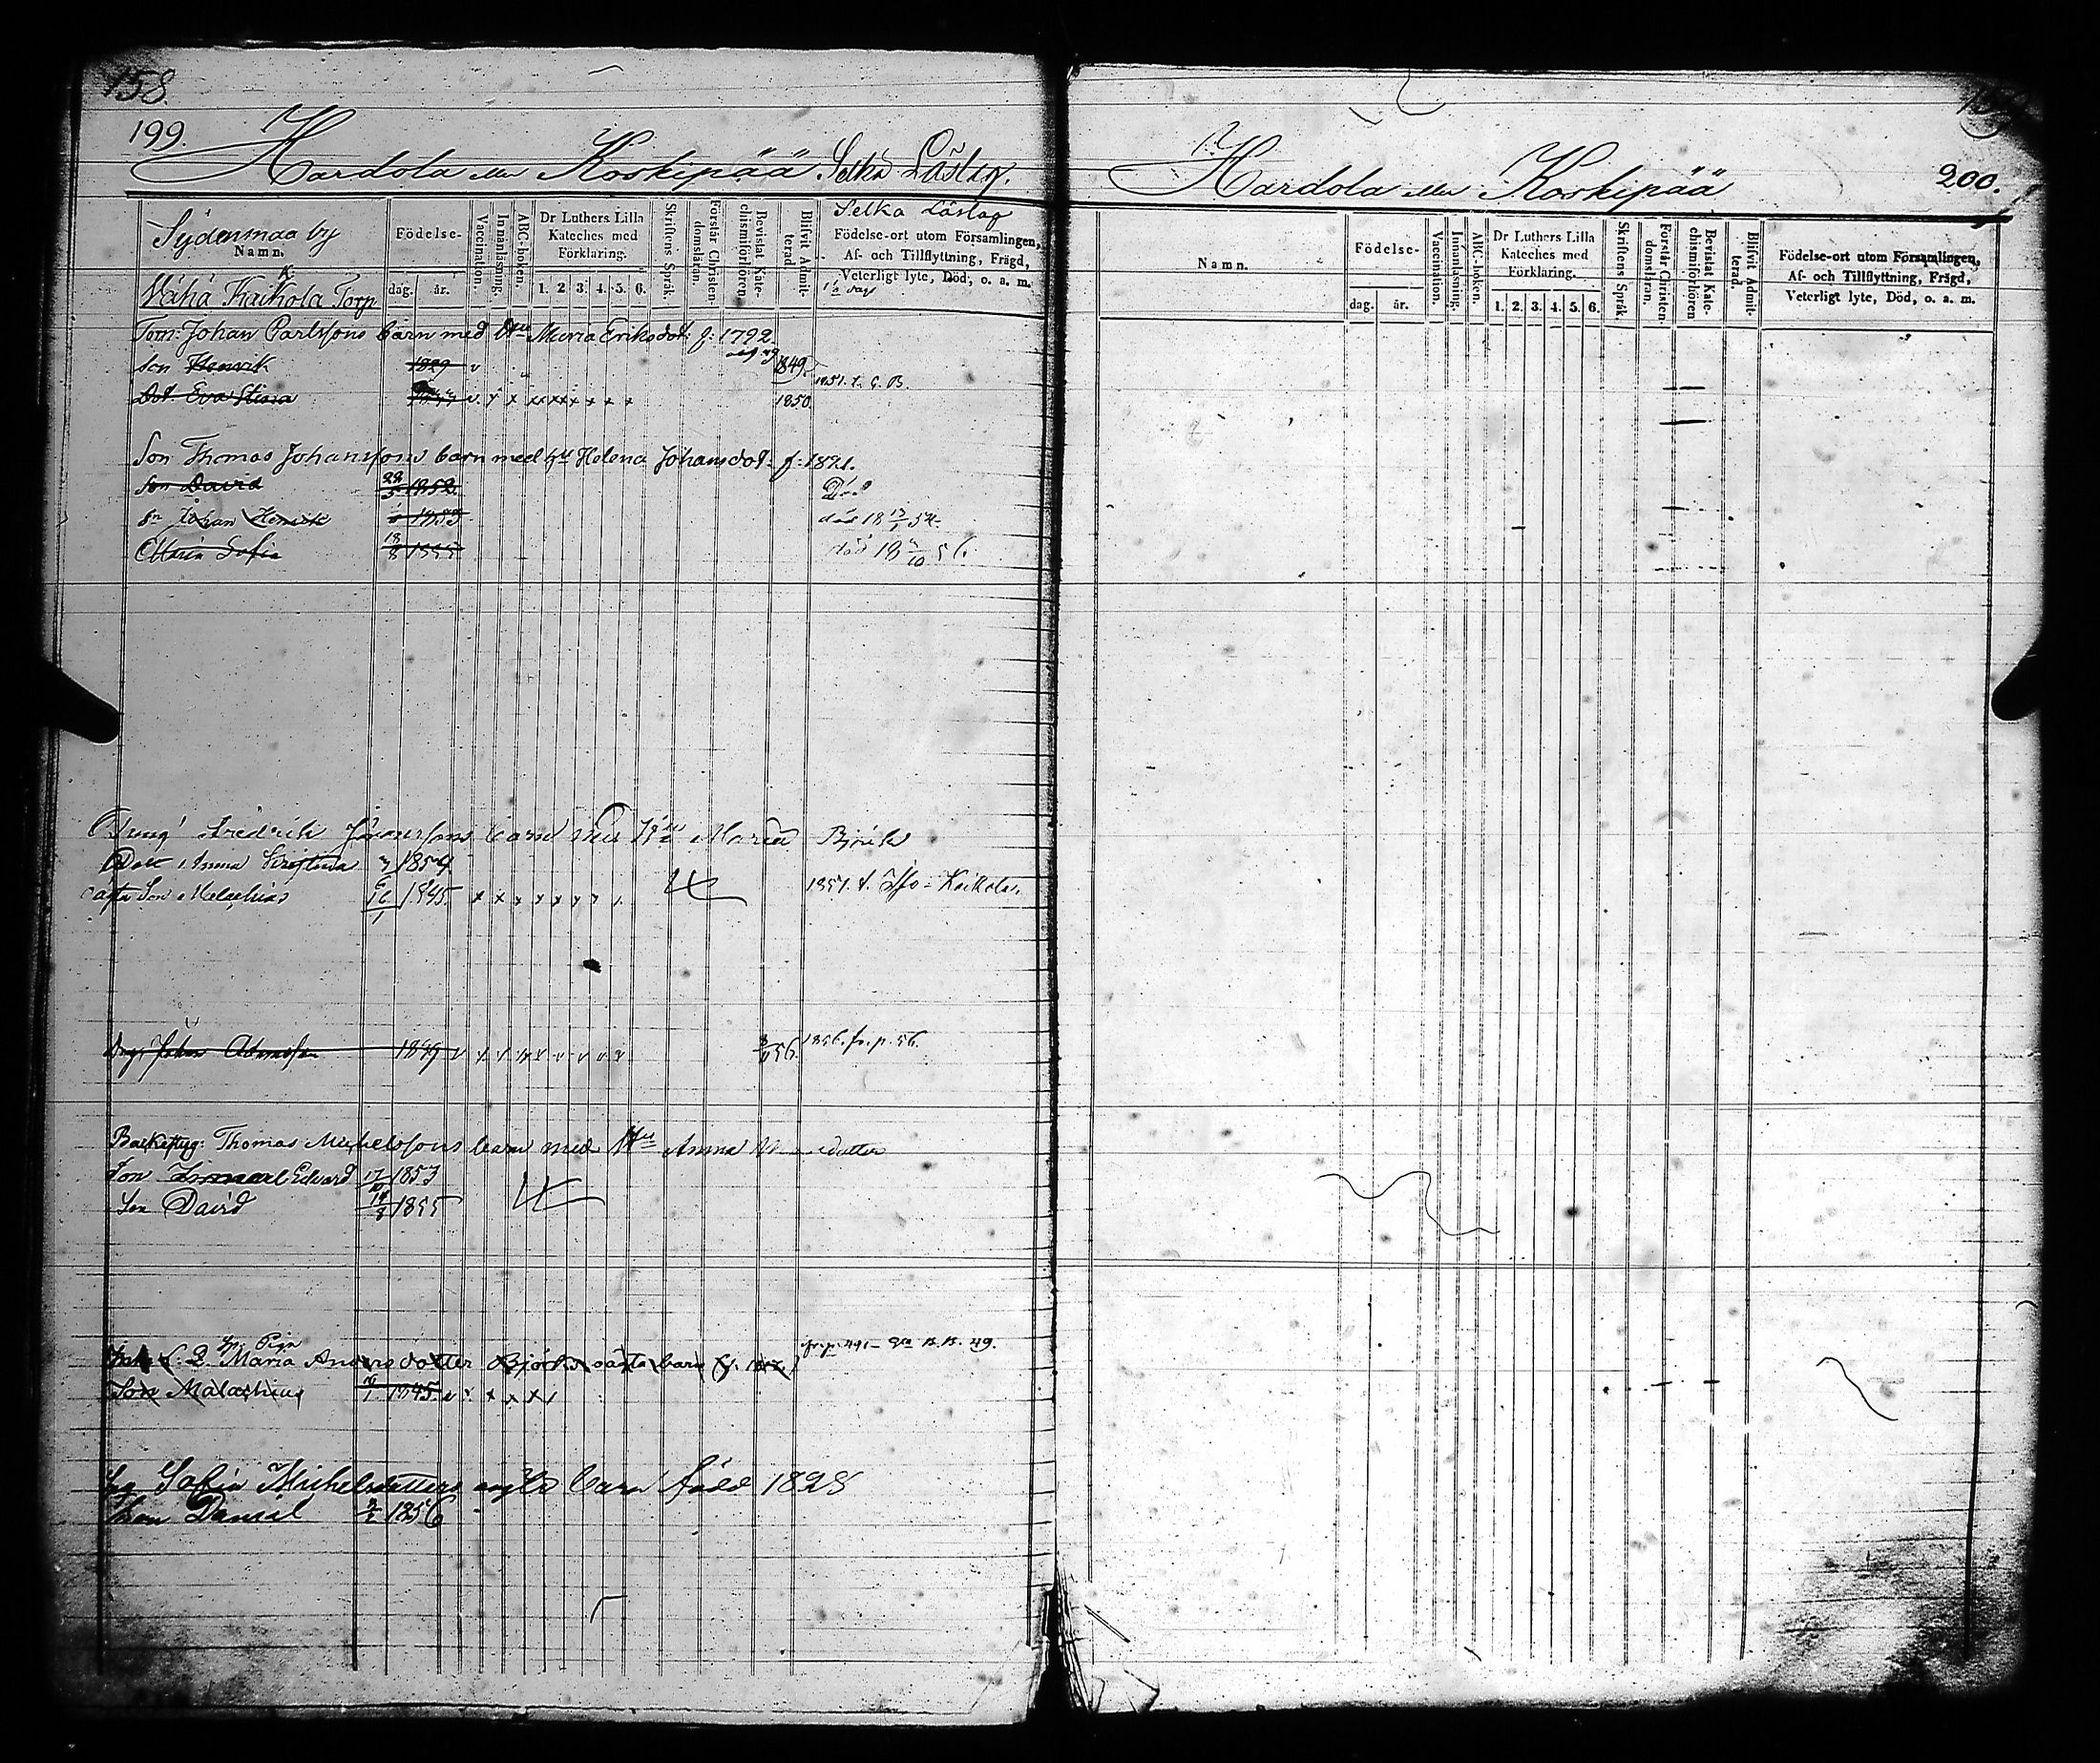 158.
199.
Hardola eller Koskipää Selkä Läslag.
Sydänmaa by
Namn.
Födelse-
dag.
år.
Vaccination.
Innanläsning.
ABC-boken.
Dr Luthers Lilla
Kateches med
Förklaring.
1. 2. 3. 4. 5. 6.
Skriftens Språk.
Förstår Christen-
domsläran.
Bevistat Kate-
chismiförhören
Blifvit Admit-
terad.
Selka Läslag
Födelse-ort utom Församlingen,
Af- och Tillflyttning, Frägd,
Veterligt lyte, Död, o. a. m.
Vähä Kaikola Torp
Torp: Johan Carlssons barn med Hu Maria Eriksdot. f: 1792
Son Henrik 1829 v 1849.
Dot. Eva Stina v. x x x x x x x x 1850. 1851. t. C. B.
Son Thomas Johanssons barn med hu Helena Johansdot. f: 1821.
Son David 22/5 1852 Död
Sn Johan Henrik 1853 död 18 13/1 54.
Maria Sofia 18/8 1855 död 18 /10 56.
Fredrik Johanssons barn med Hu Maria Björk
Dott. Anna Kristina 1854
oäkta Son Malachias 16/1 1845. x x x x x x 1857. t. Iso-Kaikola.
Johan Adamsson 1839 v 56. 1856. fr. p. 56.
Backstug: Thomas Michelssons barn med Hu Anna dotter
Son Edvard 17/10 1853
Son David 14/8 1855
Pign
Maria Andersdotter Björks oäkta barn
fr. p. 491 B. 49.
Son Malachias 16/1 1845.
Sofia Michelsdotters oägta barn född 1828
Son Daniel 1856
Hardola eller Koskipää
200.
Namn.
Födelse-
dag.
år.
Vaccination.
Innanläsning.
ABC-boken.
Dr Luthers Lilla
Kateches med
Förklaring.
1. 2. 3. 4. 5. 6.
Skriftens Språk.
Förstår Christen-
domsläran.
Bevistat Kate-
chismiförhören
Blifvit Admit-
terad.
Födelse-ort utom Församlingen,
Af- och Tillflyttning, Frägd,
Veterligt lyte, Död, o. a. m.